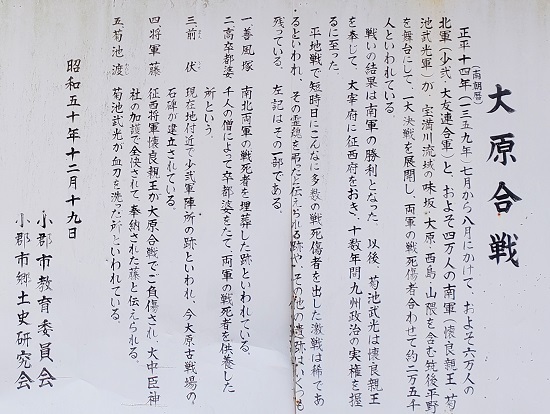 大原合戦
(南朝暦)
正平十四年(一三五九年)七月から八月にかけて、およそ六万人の
北軍(少弐、大友連合軍)と、およそ四万人の南軍(懐良親王、菊
池武光軍)が、宝満川流域の味坂、大原、西島、山隈を含む筑後平野
を舞台にして、一大決戦を展開し、両軍の戦死傷者合わせて約二万五千
人といわれている
戦いの結果は南軍の勝利となった。以後、菊池武光は懐良親王
を奉じて、大宰府に征西府をおき、十数年間九州政治の実権を握
るに至った。
平地戦で短時日にこんなに多数の戦死傷者を出した激戦は稀であ
るといわれ、その霊魂を弔ったと伝えられる跡や、その他の遺跡はいくつも
残っている。左記はその一部である
一.善風塚 南北両軍の戦死者を埋葬した跡といわれている。
二.高卒都婆 千人の僧によって卒都婆をたて、両軍の戦死者を供養した
所という。
三.前伏 現在地付近で少弐軍陣所の跡といわれ、今大原古戦場の
石碑が建立されている。
四.将軍藤 征西将軍懐良親王が大原合戦でご負傷され、大中臣神
社の加護で全快されて、奉納された藤と伝えられる。
五.菊池渡 菊池武光が血刀を洗った所といわれている。
昭和五十年十二月十九日
小郡市教育委員会
小郡市郷土史研究会